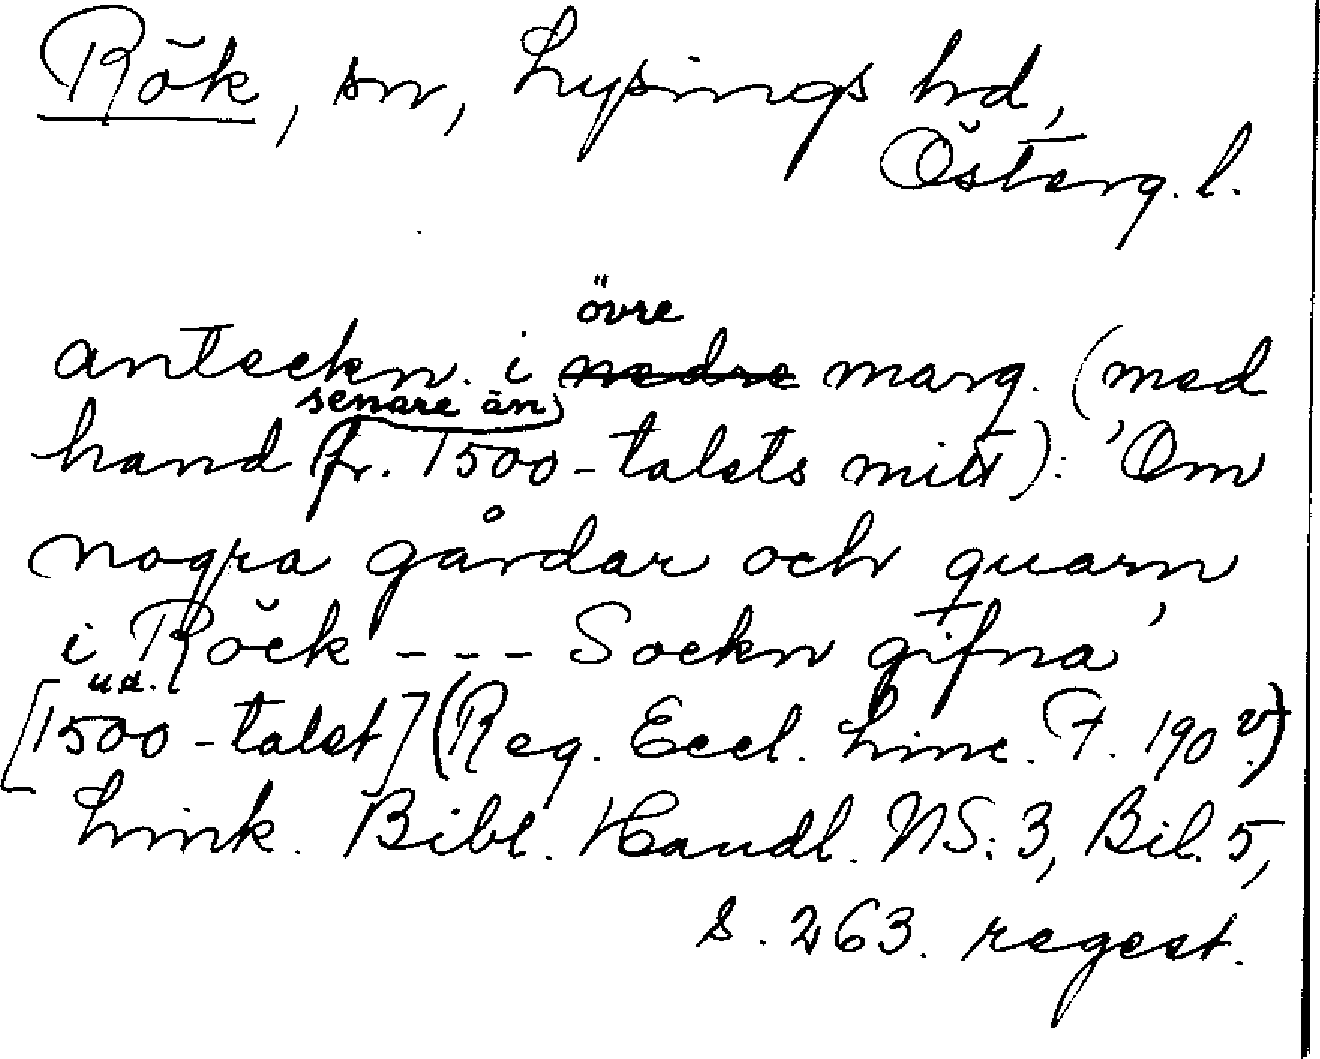 Rök, sn, Lysings hd,
Österg. l.
övre
anteckn. i nedre marg. (med
senare än
hand fr. 1500-talets mitt): 'Om
nogra gårdar och quarn
i Röck --- Sockn gifna'
u.a.
[1500-talet] (Reg. Eccl. Linc. F. 190 v.)
Link. Bibl. Handl. NS: 3, Bil. 5,
s. 263. regest.